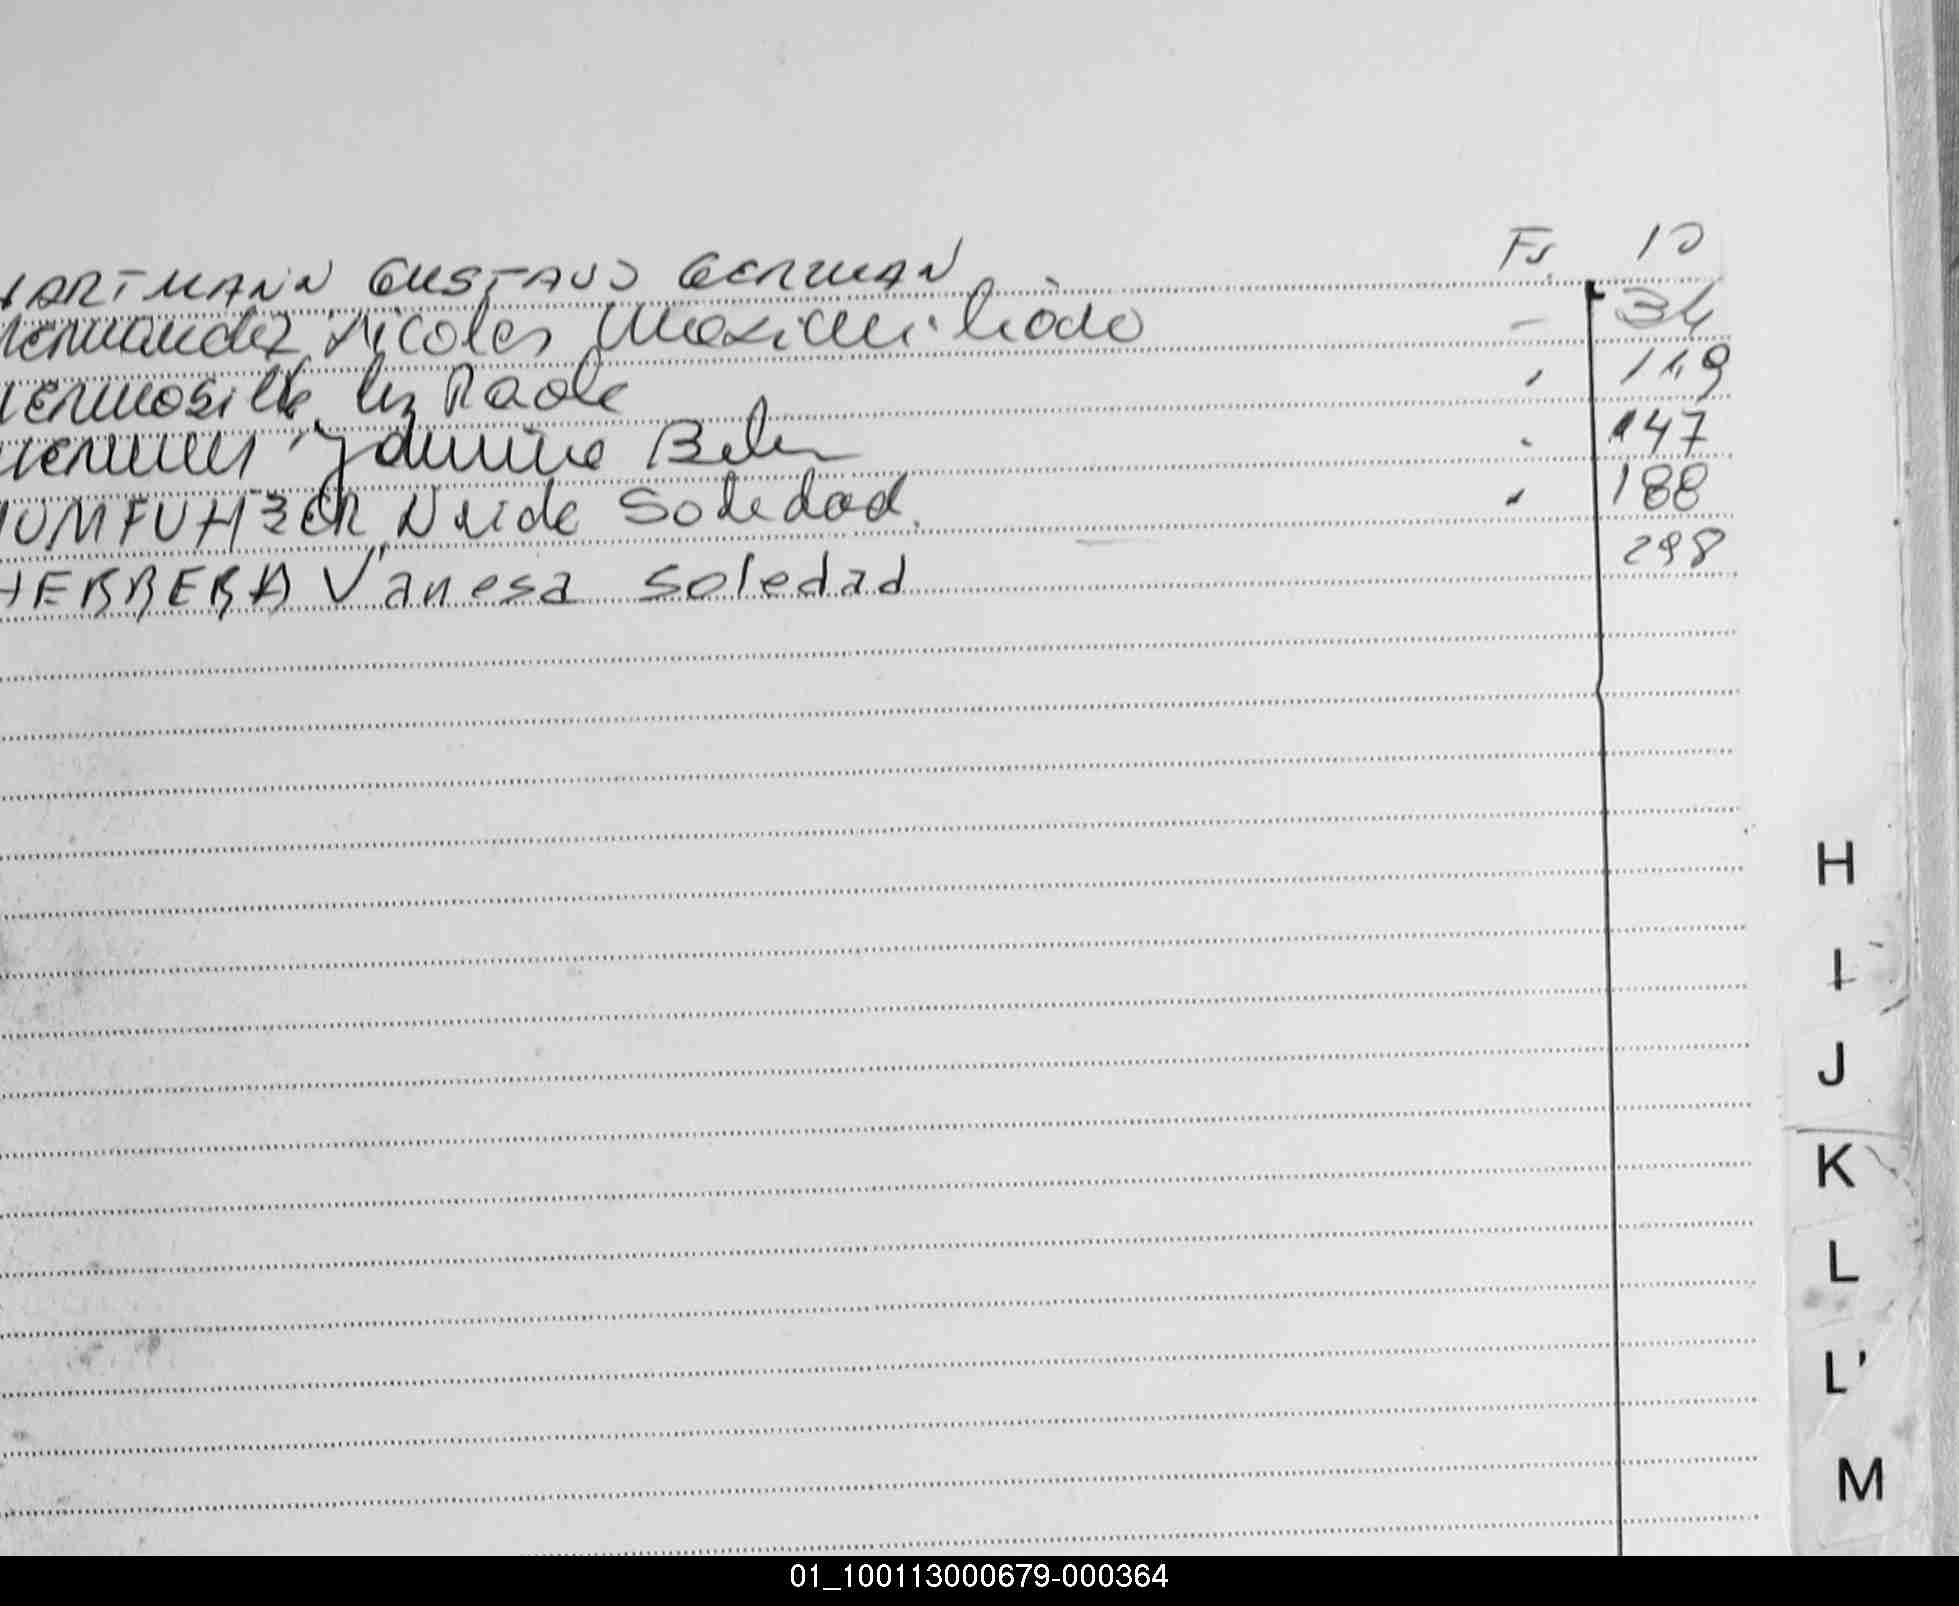 HARTMANN GUSTAVO GERMAN Fs. 10
Hernandez Nicolas Maximiliano - 34
Hermosilla Luz Paola " 119
Yamina Belen " 147
HUMFUHZER Neide Soledad. " 188
HERRERA Vanesa Soledad 298
H
I
J
K
L
L'
M
01_100113000679-000364